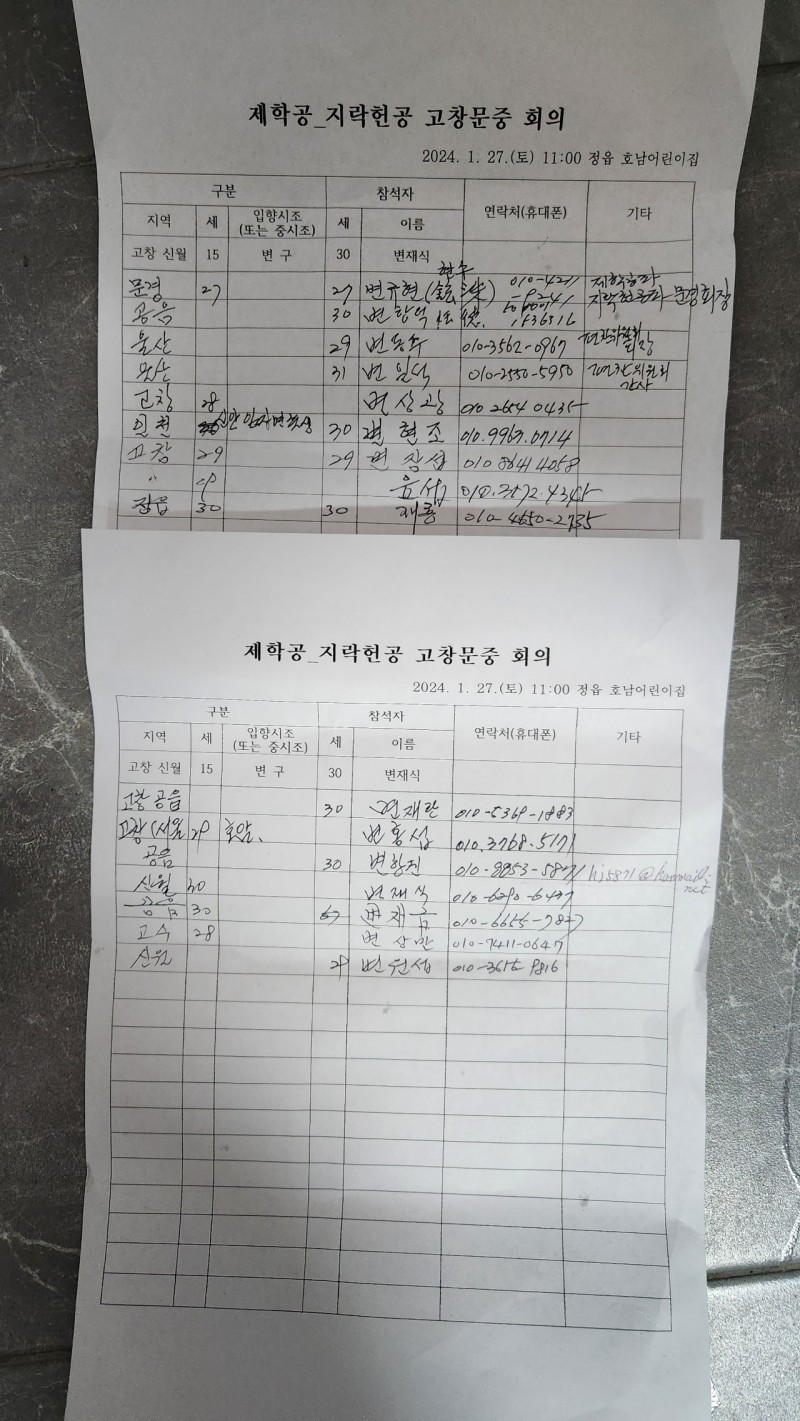 제학공_지락헌공 고창문중 회의
2024. 1. 27.(토) 11:00 정읍 호남어린이집
구분 참석자 연락처(휴대폰) 기타
지역 세 입향시조 (또는 중시조) 세 이름
고창 신월 15 변 구 30 변재식
문경 27 27 변규현 010-4211 제학공파
공음 30 변항억 지락헌공파 문경회장
울산 29 변동수 010-3562-0967
31 변일석 010-2550-5950 감사
고창 28 변상광 010 2654 0435
인천 30 변현조 010.9963.0714
고창 29 29 변장섭 010 8641 4058
" 29 윤섭 010.3172.4345
정읍 30 30 재홍 010-4650-2735
제학공_지락헌공 고창문중 회의
2024. 1. 27.(토) 11:00 정읍 호남어린이집
구분 참석자 연락처(휴대폰) 기타
지역 세 입향시조 (또는 중시조) 세 이름
고창 신월 15 변 구 30 변재식
고창 공음 30 변재란 010-5369-1883
고창(신월 29 호암. 변홍섭 010.3768.5171
공음 30 변항진 010-8853-5871 hj5871@hanmail.net
신월 30 변재식 010-6290-6477
공음 30 변재금 010-6655-7827
고수 28 변상만 010-7411-0647
신월 29 변원섭 010-3615-9816